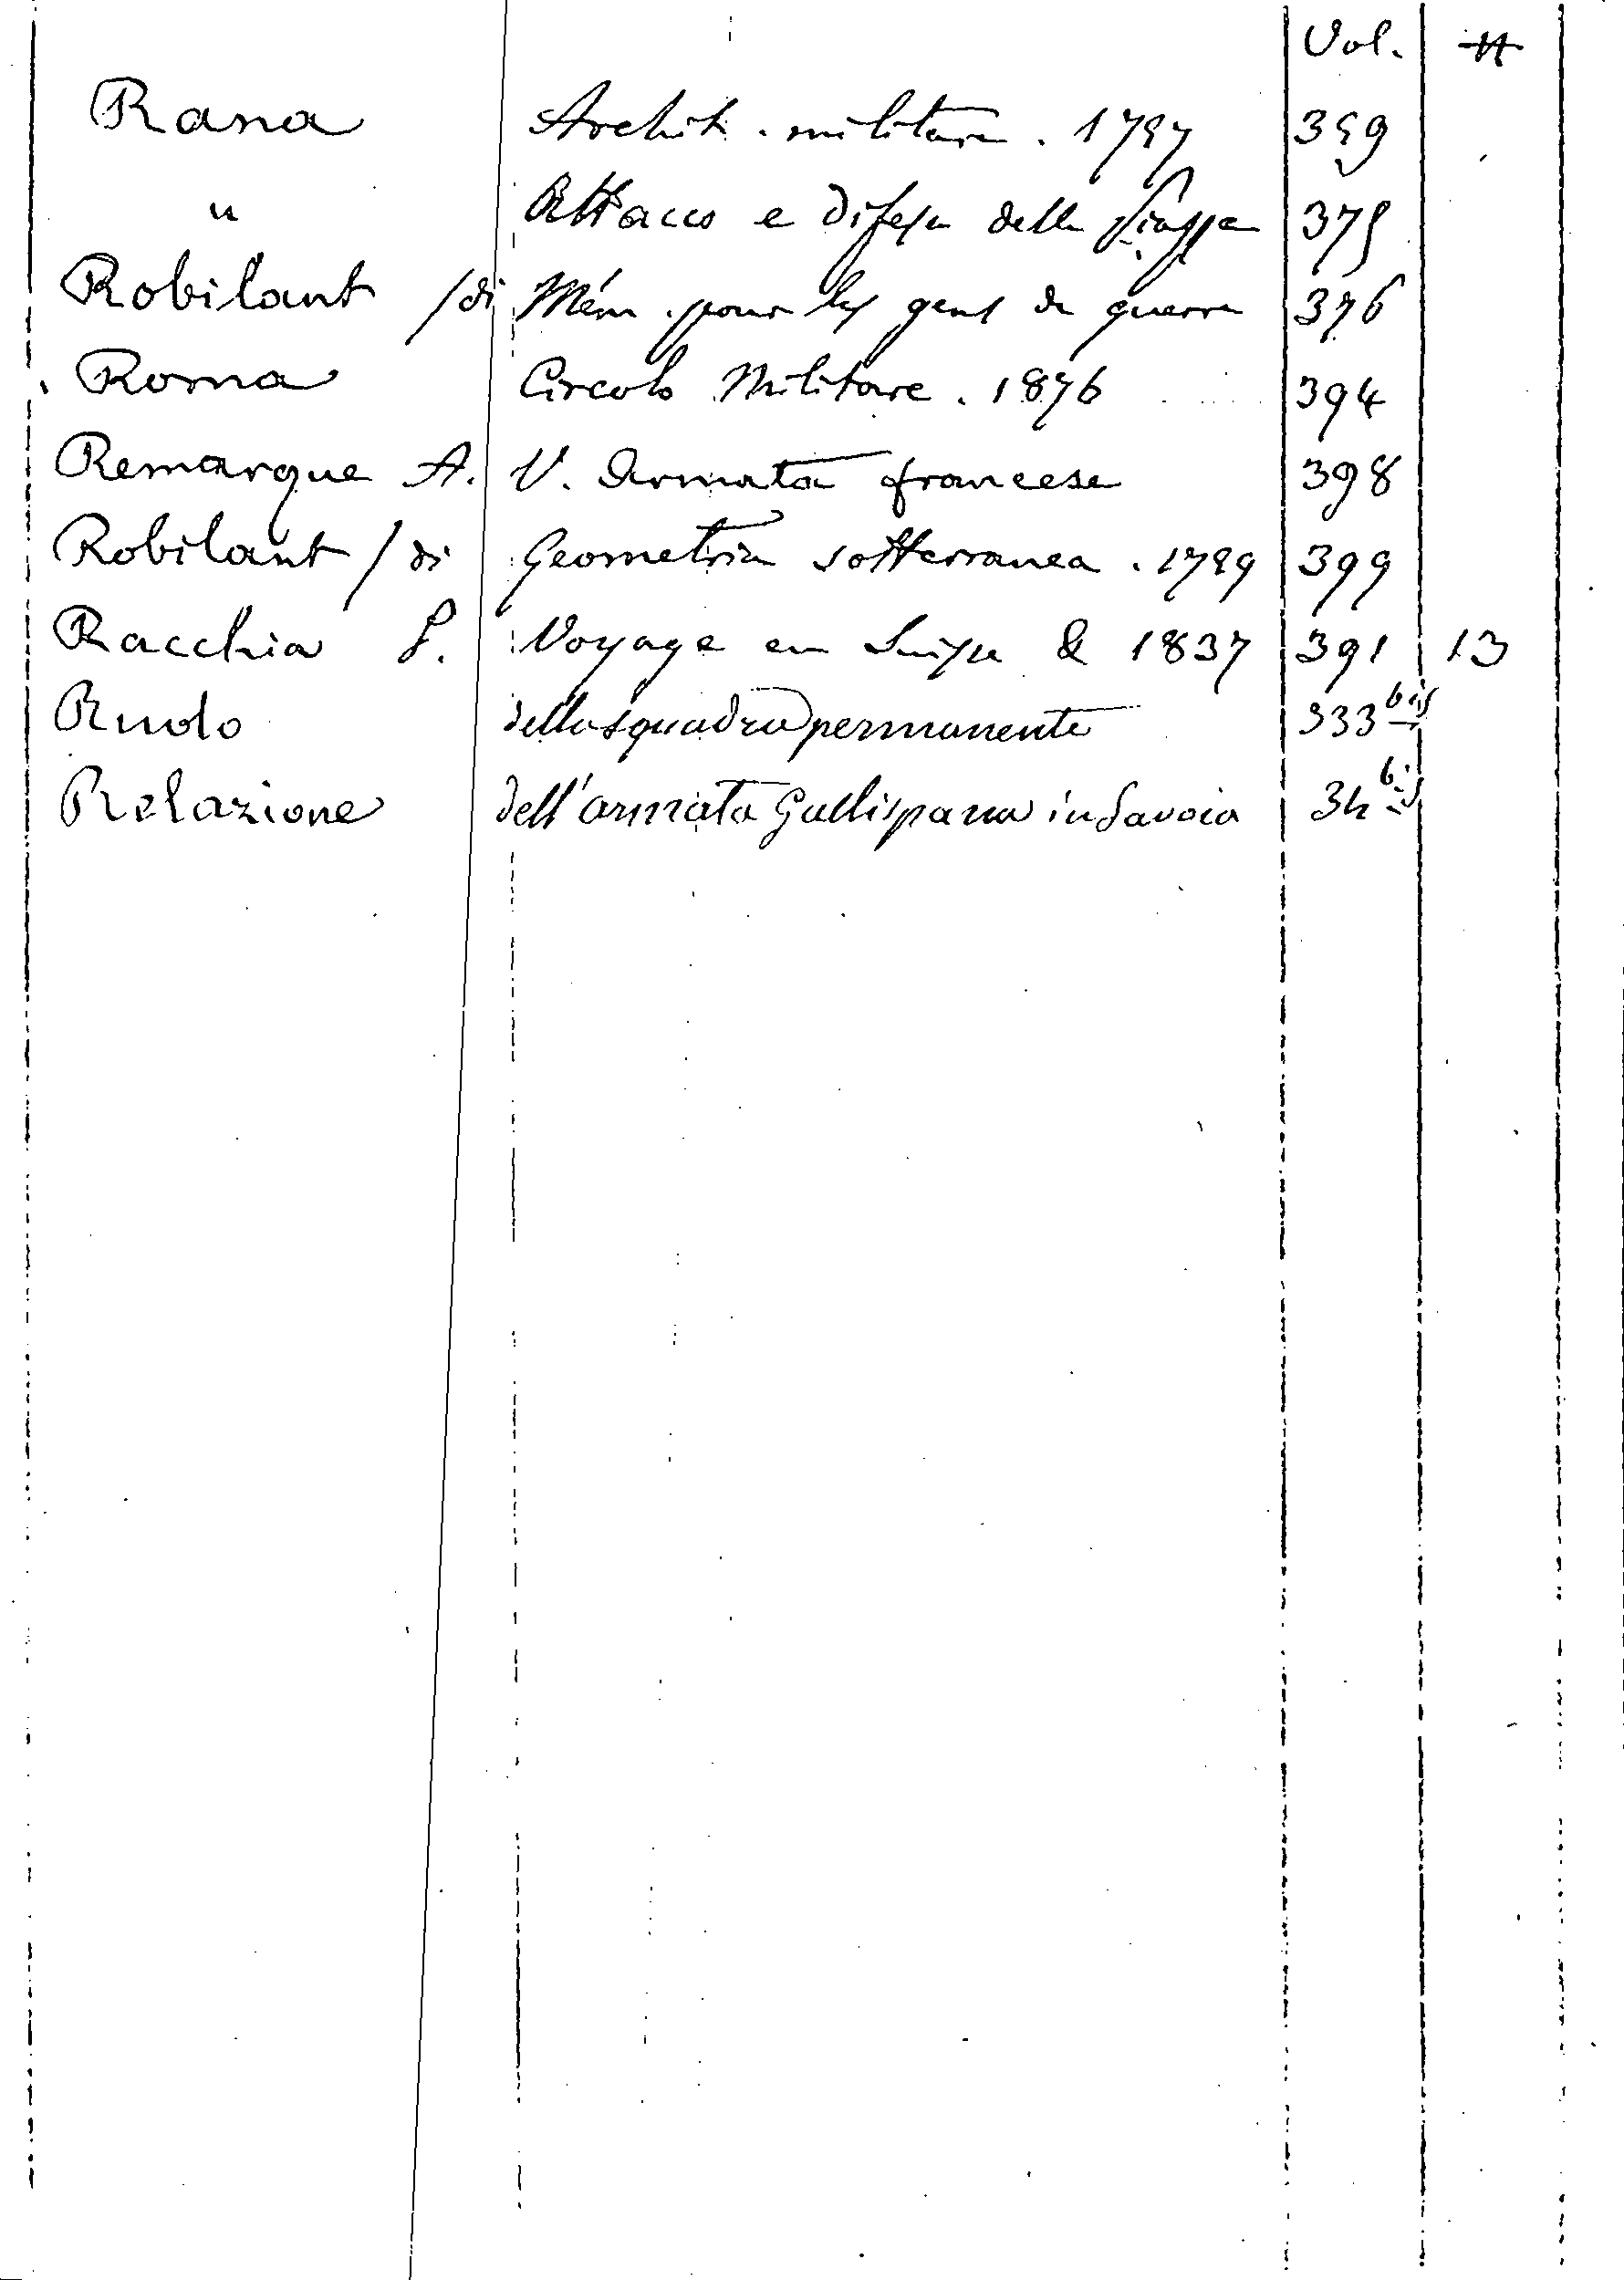 Vol. #
Rana Archit. militare. 1797 359
" Attacco e difesa delle piazze 375
Robilant /di Mém. pour les gens de guerre 376
Roma Circolo Militare. 1876 394
Remarque A. V. Armata francese 398
Robilant /di Geometria sotterranea. 1799 399
Racchia P. Voyage en Suisse & 1837 391 13
Ruolo della squadra permanente 333 bis
Relazione dell'armata Gallispana in Savoia 34 bis